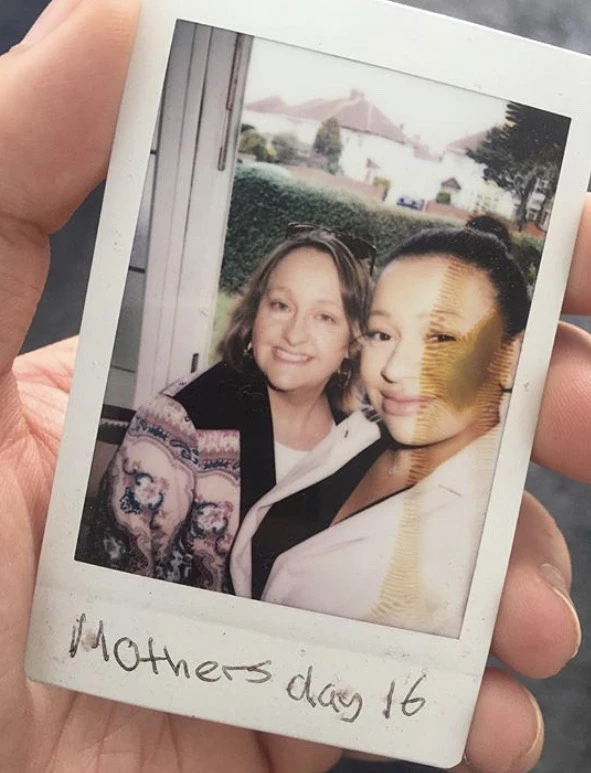 Mothers day 16